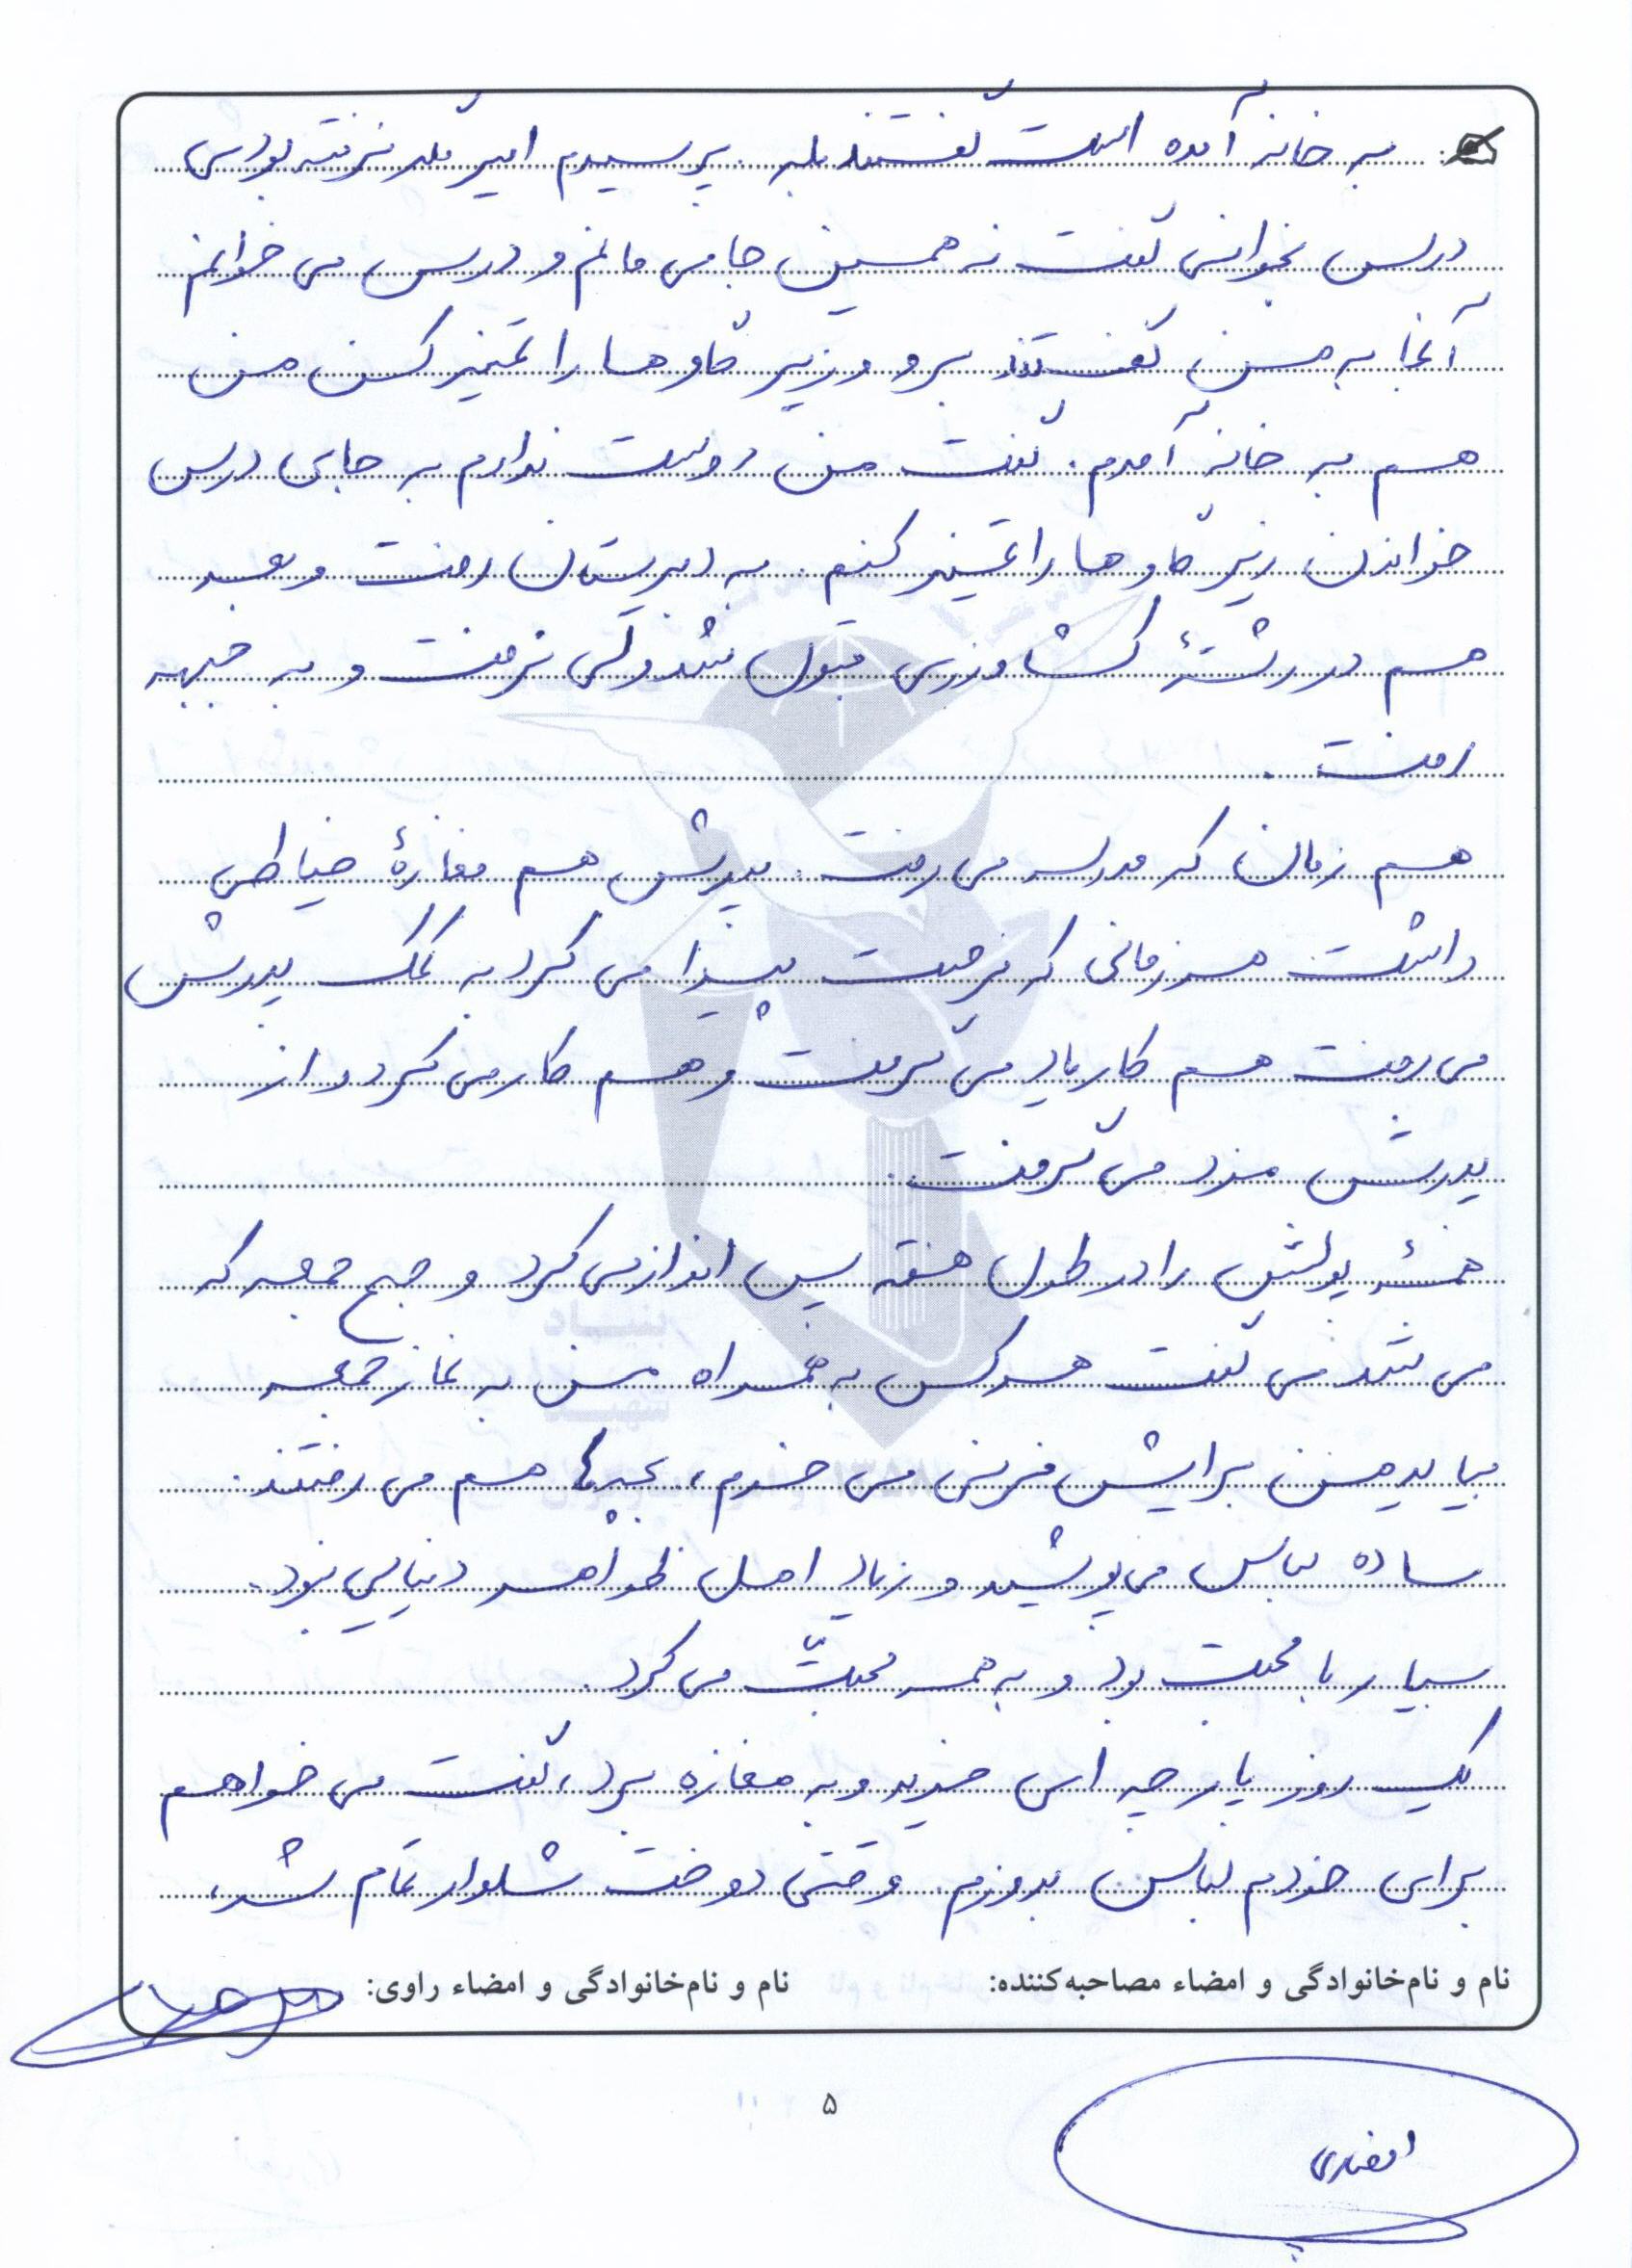 به خانه آمده است گفتند بله. پرسیدم امیر مگر نرفته بودی
درس بخوانی گفت نه همین جا می مانم و درس می خوانم
آنجا به من گفتند برو و زیر گاوها را تمیز کن من
هم به خانه آمدم. گفت من دوست ندارم به جای درس
خواندن زیر گاوها را تمیز کنم. به دبیرستان رفت و بعد
هم در رشتهٔ کشاورزی قبول شد ولی نرفت و به جبهه
رفت.
هم زمان که مدرسه می رفت. پدرش هم مغازهٔ خیاطی
داشت هر زمانی که فرصت پیدا می کرد به کمک پدرش
می رفت هم کار یاد می گرفت و هم کار می کرد و از
پدرش مزد می گرفت.
همهٔ پولش را در طول هفته پس انداز می کرد و صبح جمعه که
می شد می گفت هر کس به همراه من به نماز جمعه
بیاید من برایش فرنی می خرم، بچه ها هم می رفتند.
ساده لباس می پوشید و زیاد اهل ظواهر دنیایی نبود.
بسیار با محبت بود و به همه محبت می کرد.
یک روز پارچه ای خرید و به مغازه برد، گفت می خواهم
برای خودم لباس بدوزم. وقتی دوخت شلوار تمام شد،
نام و نام‌خانوادگی و امضاء مصاحبه‌کننده: نام و نام‌خانوادگی و امضاء راوی:
۵
بنیاد
شهید